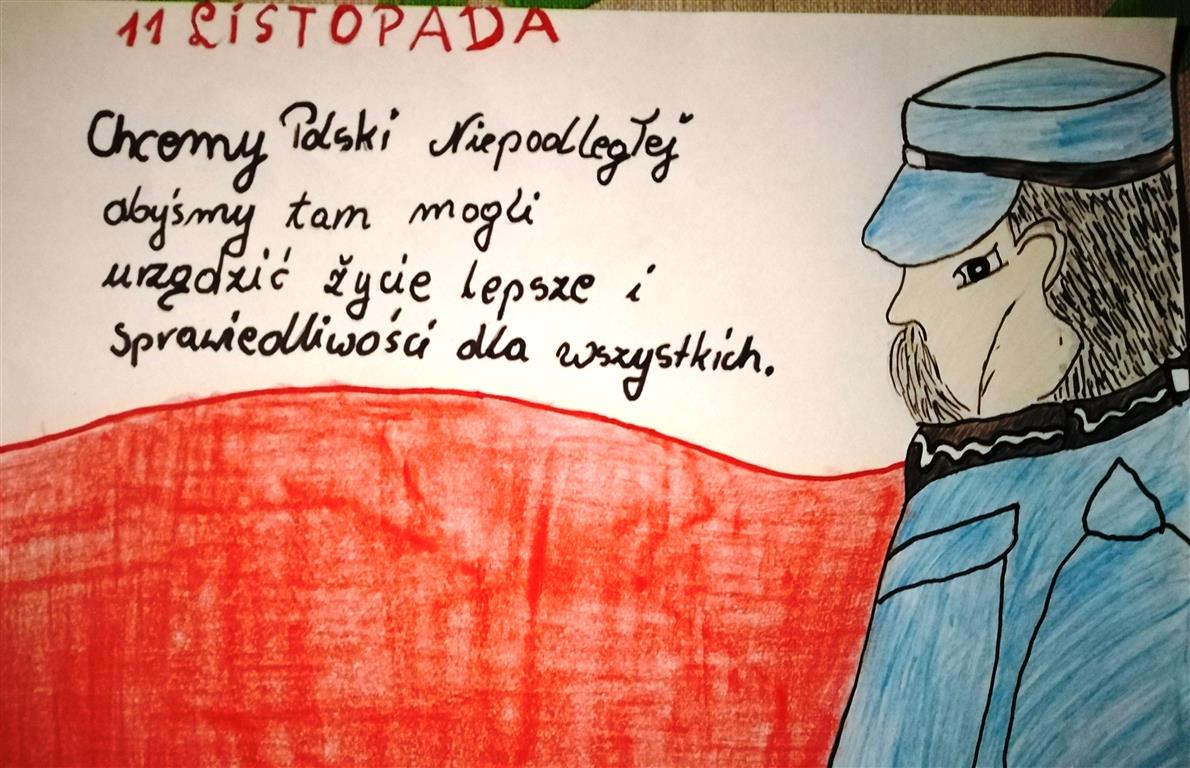 11 LISTOPADA
Chcemy Polski Niepodległej
abyśmy tam mogli
urządzić życie lepsze i
sprawiedliwości dla wszystkich.